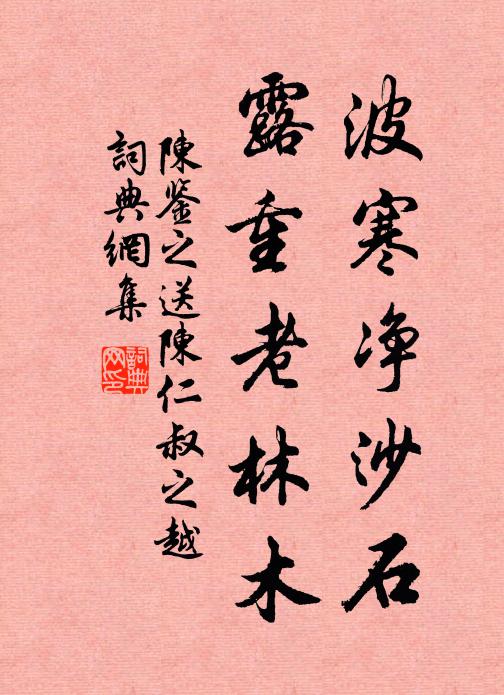 波寒净沙石
露重老林木
陳鉴之送陳仁叔之越
詞典網集
詞典网印